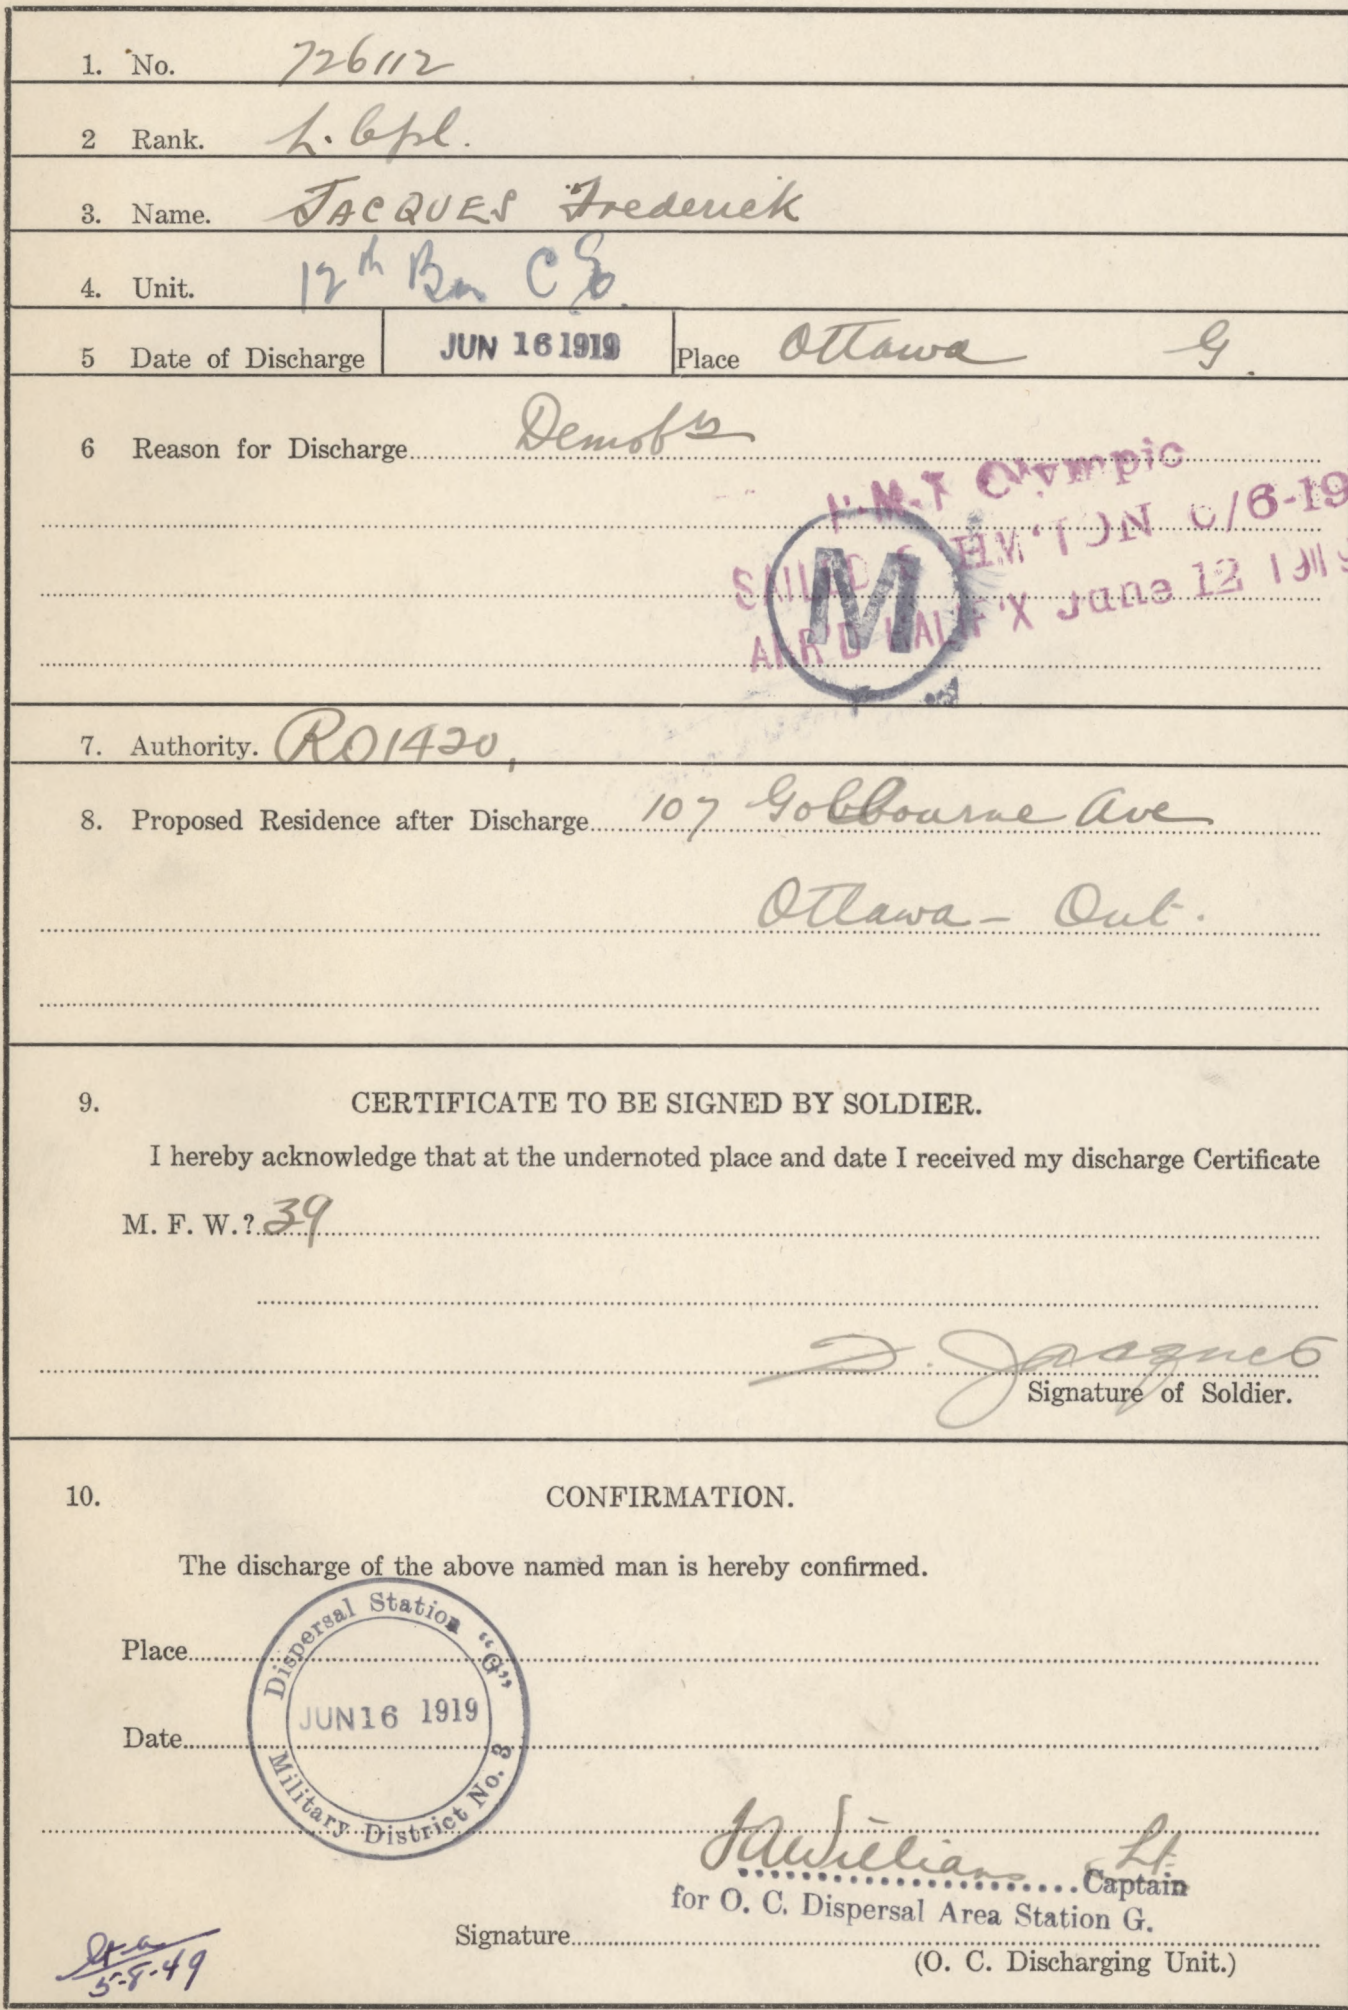 1. No. 726112
2 Rank. L. Cpl.
3. Name. JACQUES Frederick
4. Unit. 12th Bn C E.
5 Date of Discharge JUN 16 1919 Place Ottawa G.
6 Reason for Discharge Demobn
H.M.T Olympic
SAILED S'HM'TON 6/6-19
ARR'D HALIF'X June 12 1919
M
7. Authority. RO1420,
8. Proposed Residence after Discharge 107 Golbourne Ave
Ottawa - Ont.
9. CERTIFICATE TO BE SIGNED BY SOLDIER.
I hereby acknowledge that at the undernoted place and date I received my discharge Certificate
M. F. W.? 39
F. Jacques
Signature of Soldier.
10. CONFIRMATION.
The discharge of the above named man is hereby confirmed.
Place
Dispersal Station "G"
JUN 16 1919
Date
Military District No. 3
JAWilliams Lt
Captain
for O. C. Dispersal Area Station G.
Signature
(O. C. Discharging Unit.)
5-8-49